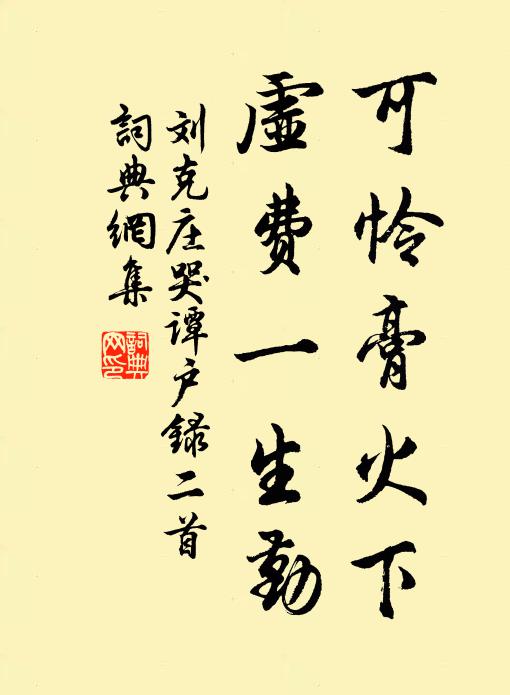 可怜膏火下
虚费一生勤
刘克庄哭谭户録二首
詞典網集
詞典网印